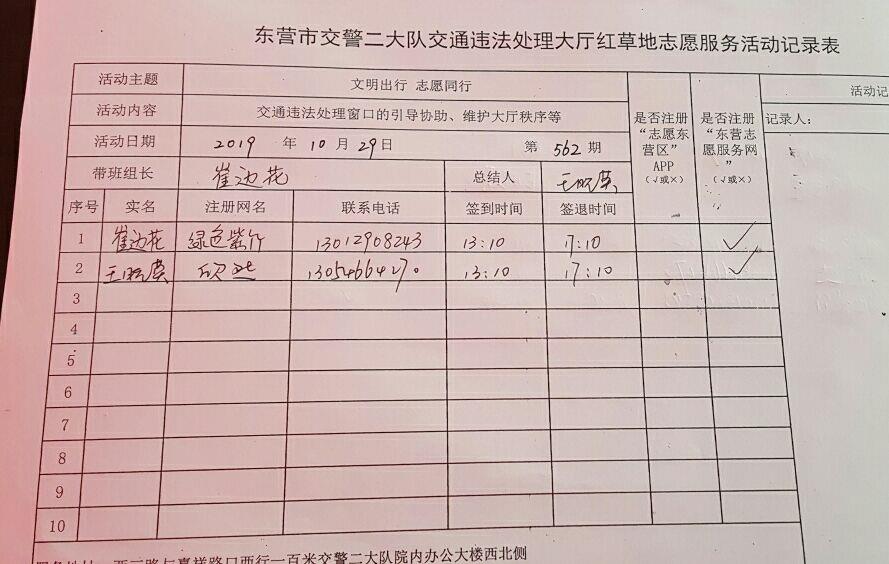 东营市交警二大队交通违法处理大厅红草地志愿服务活动记录表
活动主题 文明出行 志愿同行 是否注册“志愿东营区”APP（√或×） 是否注册“东营志愿服务网”（√或×） 活动记
活动内容 交通违法处理窗口的引导协助、维护大厅秩序等 记录人：
活动日期 2019 年 10 月 29 日 第 562 期
带班组长 崔边花 总结人
序号 实名 注册网名 联系电话 签到时间 签退时间
1 崔边花 绿色紫竹 13012908243 13:10 17:10 √
2 13:10 17:10 √
3
4
5
6
7
8
9
10
西三路与嘉祥路口西行一百米交警二大队院内办公大楼西北侧